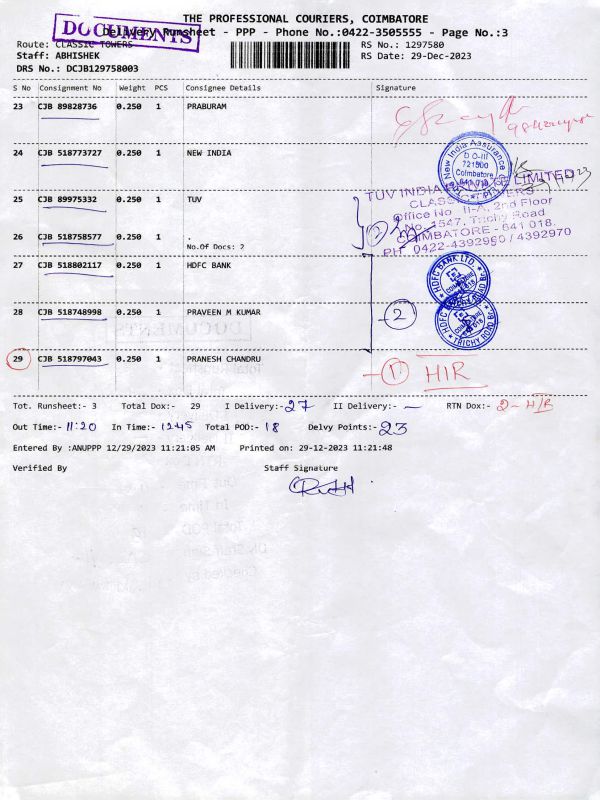 THE PROFESSIONAL COURIERS, COIMBATORE
DOCUMENTS
Delivery Runsheet - PPP - Phone No.:0422-3505555 - Page No.:3
Route: CLASSIC TOWERS
RS No.: 1297580
Staff: ABHISHEK
RS Date: 29-Dec-2023
DRS No.: DCJB129758003
S No Consignment No Weight PCS Consignee Details Signature
23 CJB 89828736 0.250 1 PRABURAM
24 CJB 518773727 0.250 1 NEW INDIA
New India Assurance
D O-III
721500
Coimbatore
641 018
25 CJB 89975332 0.250 1 TUV
TUV INDIA PRIVATE LIMITED
CLASSIC TOWERS
Office No. II-A, 2nd Floor
No. 1547, Trichy Road
COIMBATORE - 641 018.
PH 0422-4392960 / 4392970
2
26 CJB 518758577 0.250 1 .
No.Of Docs: 2
27 CJB 518802117 0.250 1 HDFC BANK
HDFC BANK LTD.
28 CJB 518748998 0.250 1 PRAVEEN M KUMAR
- 2
HDFC BANK
TRICHY ROAD BR
29 CJB 518797043 0.250 1 PRANESH CHANDRU
- 1 HIR
Tot. Runsheet:- 3 Total Dox:- 29 I Delivery:- 27 II Delivery:- — RTN Dox:- 2-H/R
Out Time:- 11:20 In Time:- 1245 Total POD:- 18 Delvy Points:- 23
Entered By :ANUPPP 12/29/2023 11:21:05 AM Printed on: 29-12-2023 11:21:48
Verified By Staff Signature